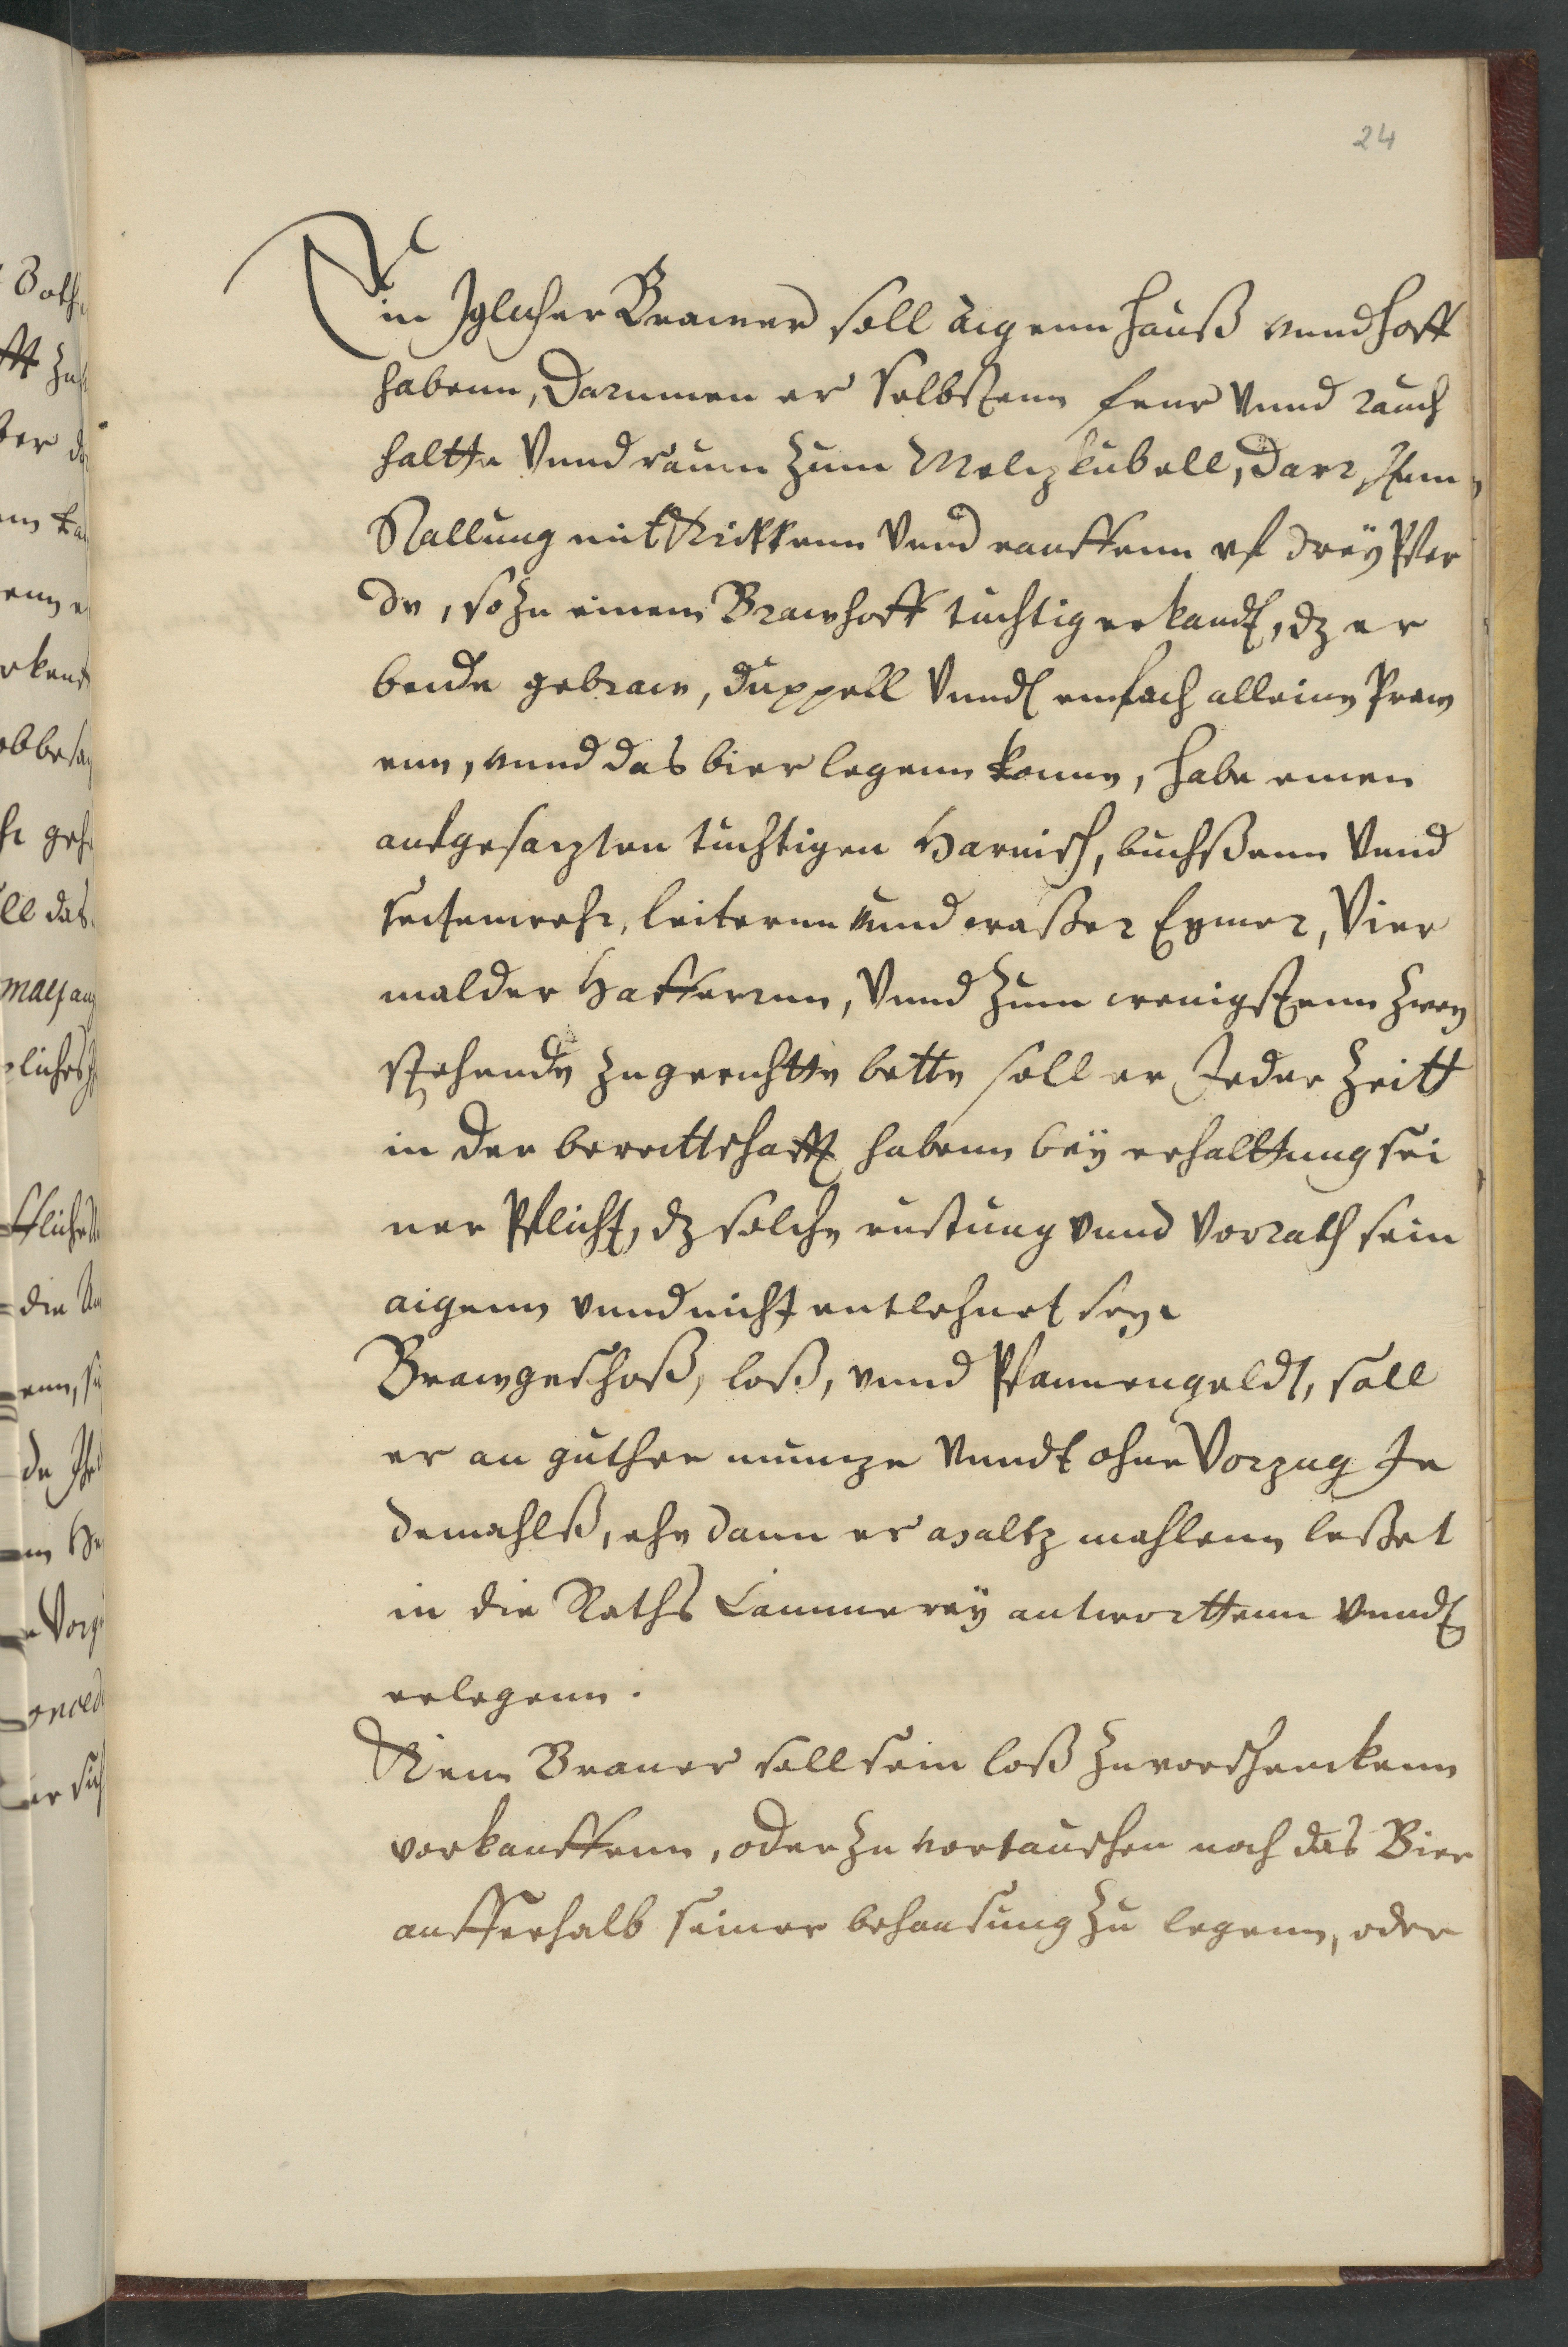 24
Ein Jglicher Brawer soll aigenn hauß vnnd hoff
habenn, Darinnen er selbstenn feur vnnd rauch
haltte vnnd raum zum Meltzkubell, Darr, Item
Stallung mit Rickkenn vnnd rauffenn vf dreÿ Pfer
de, so zu einem Brawhoff tuchtig erkandt, dz er
beide gebraw, duppell vnndt einfach alleine Praw
enn, vnnd das bier legenn konne, habe einen
aufgesatzten tuchtigen Harnisch, buchßenn vnnd
seitenwehr, leiternn vnnd waßer Eymer, Vier
malder Hafferrnn, Vnnd zum wenigstenn zwey
stehende zugerichtte bette soll er Jeder Zeitt
in der bereittschafft habenn beÿ erhalttung sei
ner Pflicht, dz solche rustung vnnd Vorrath sein
aigenn vnnd nicht entlehnet sey.
Brawgeschoß, loß, vnnd Pfannengeldt, soll
er an guther muntze vnndt ohne Vorzug Je
demahlß, ehe dann er maltz mahlenn leßet
in die Raths Cammereÿ antworttenn vnndt
erlegenn.
Kein Brauer soll sein loß zuvorschenckenn
vorkauffenn, oder zu vortauschen noch das Bier
ausserhalb seiner behausung zu legenn, oder